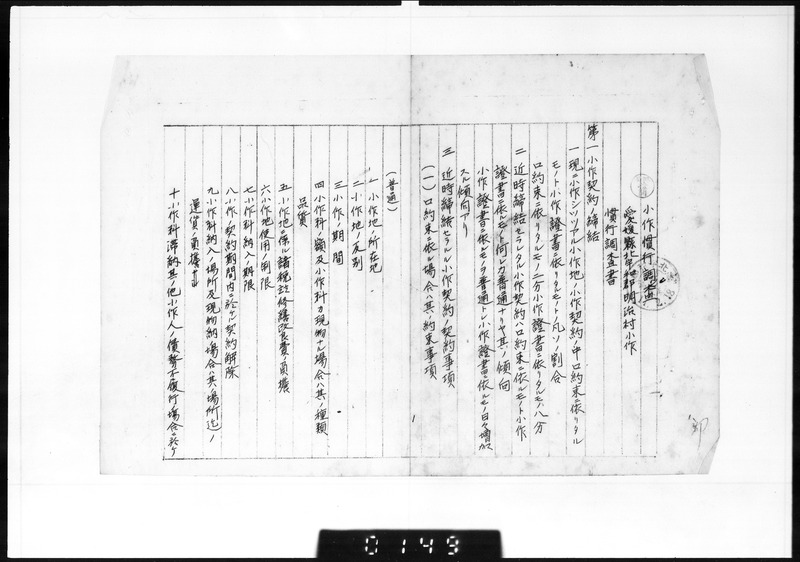 小作慣行調査
愛媛縣北宇和郡明治村小作
慣行調査書
第一 小作契約ノ締結
一 現ニ小作シツツアル小作地ノ小作契約ノ中口約束ニ依リタル
モノト小作證書ニ依リタルモノト凡ソノ割合
口約束ニ依リタルモノ二分小作證書ニ依リタルモノ八分
二 近時締結セラレタル小作契約ハ口約束ニ依ルモノト小作
證書ニ依ルモノト何レカ普通ナリヤ其ノ傾向
小作證書ニ依ルモノヲ普通トシ小作證書ニ依ルモノ日々増加
スル傾向アリ
三 近時締結セラルル小作契約ノ契約事項
(一) 口約束ニ依ル場合ハ其ノ約束事項
(普通)
一 小作地ノ所在地
二 小作地ノ反別
三 小作ノ期間
四 小作料ノ額及小作料カ現物ナル場合ハ其ノ種類
品質
五 小作地ニ係ル諸税並修繕改良費ノ負擔
六 小作地使用ノ制限
七 小作料納入ノ期限
八 小作契約期間内ニ於ケル契約解除
九 小作料納入ノ場所及現物納場合ハ其ノ場所迄ノ
運賃ノ負擔
十 小作料滞納其ノ他小作人ノ債務不履行場合ニ於ケ
0149